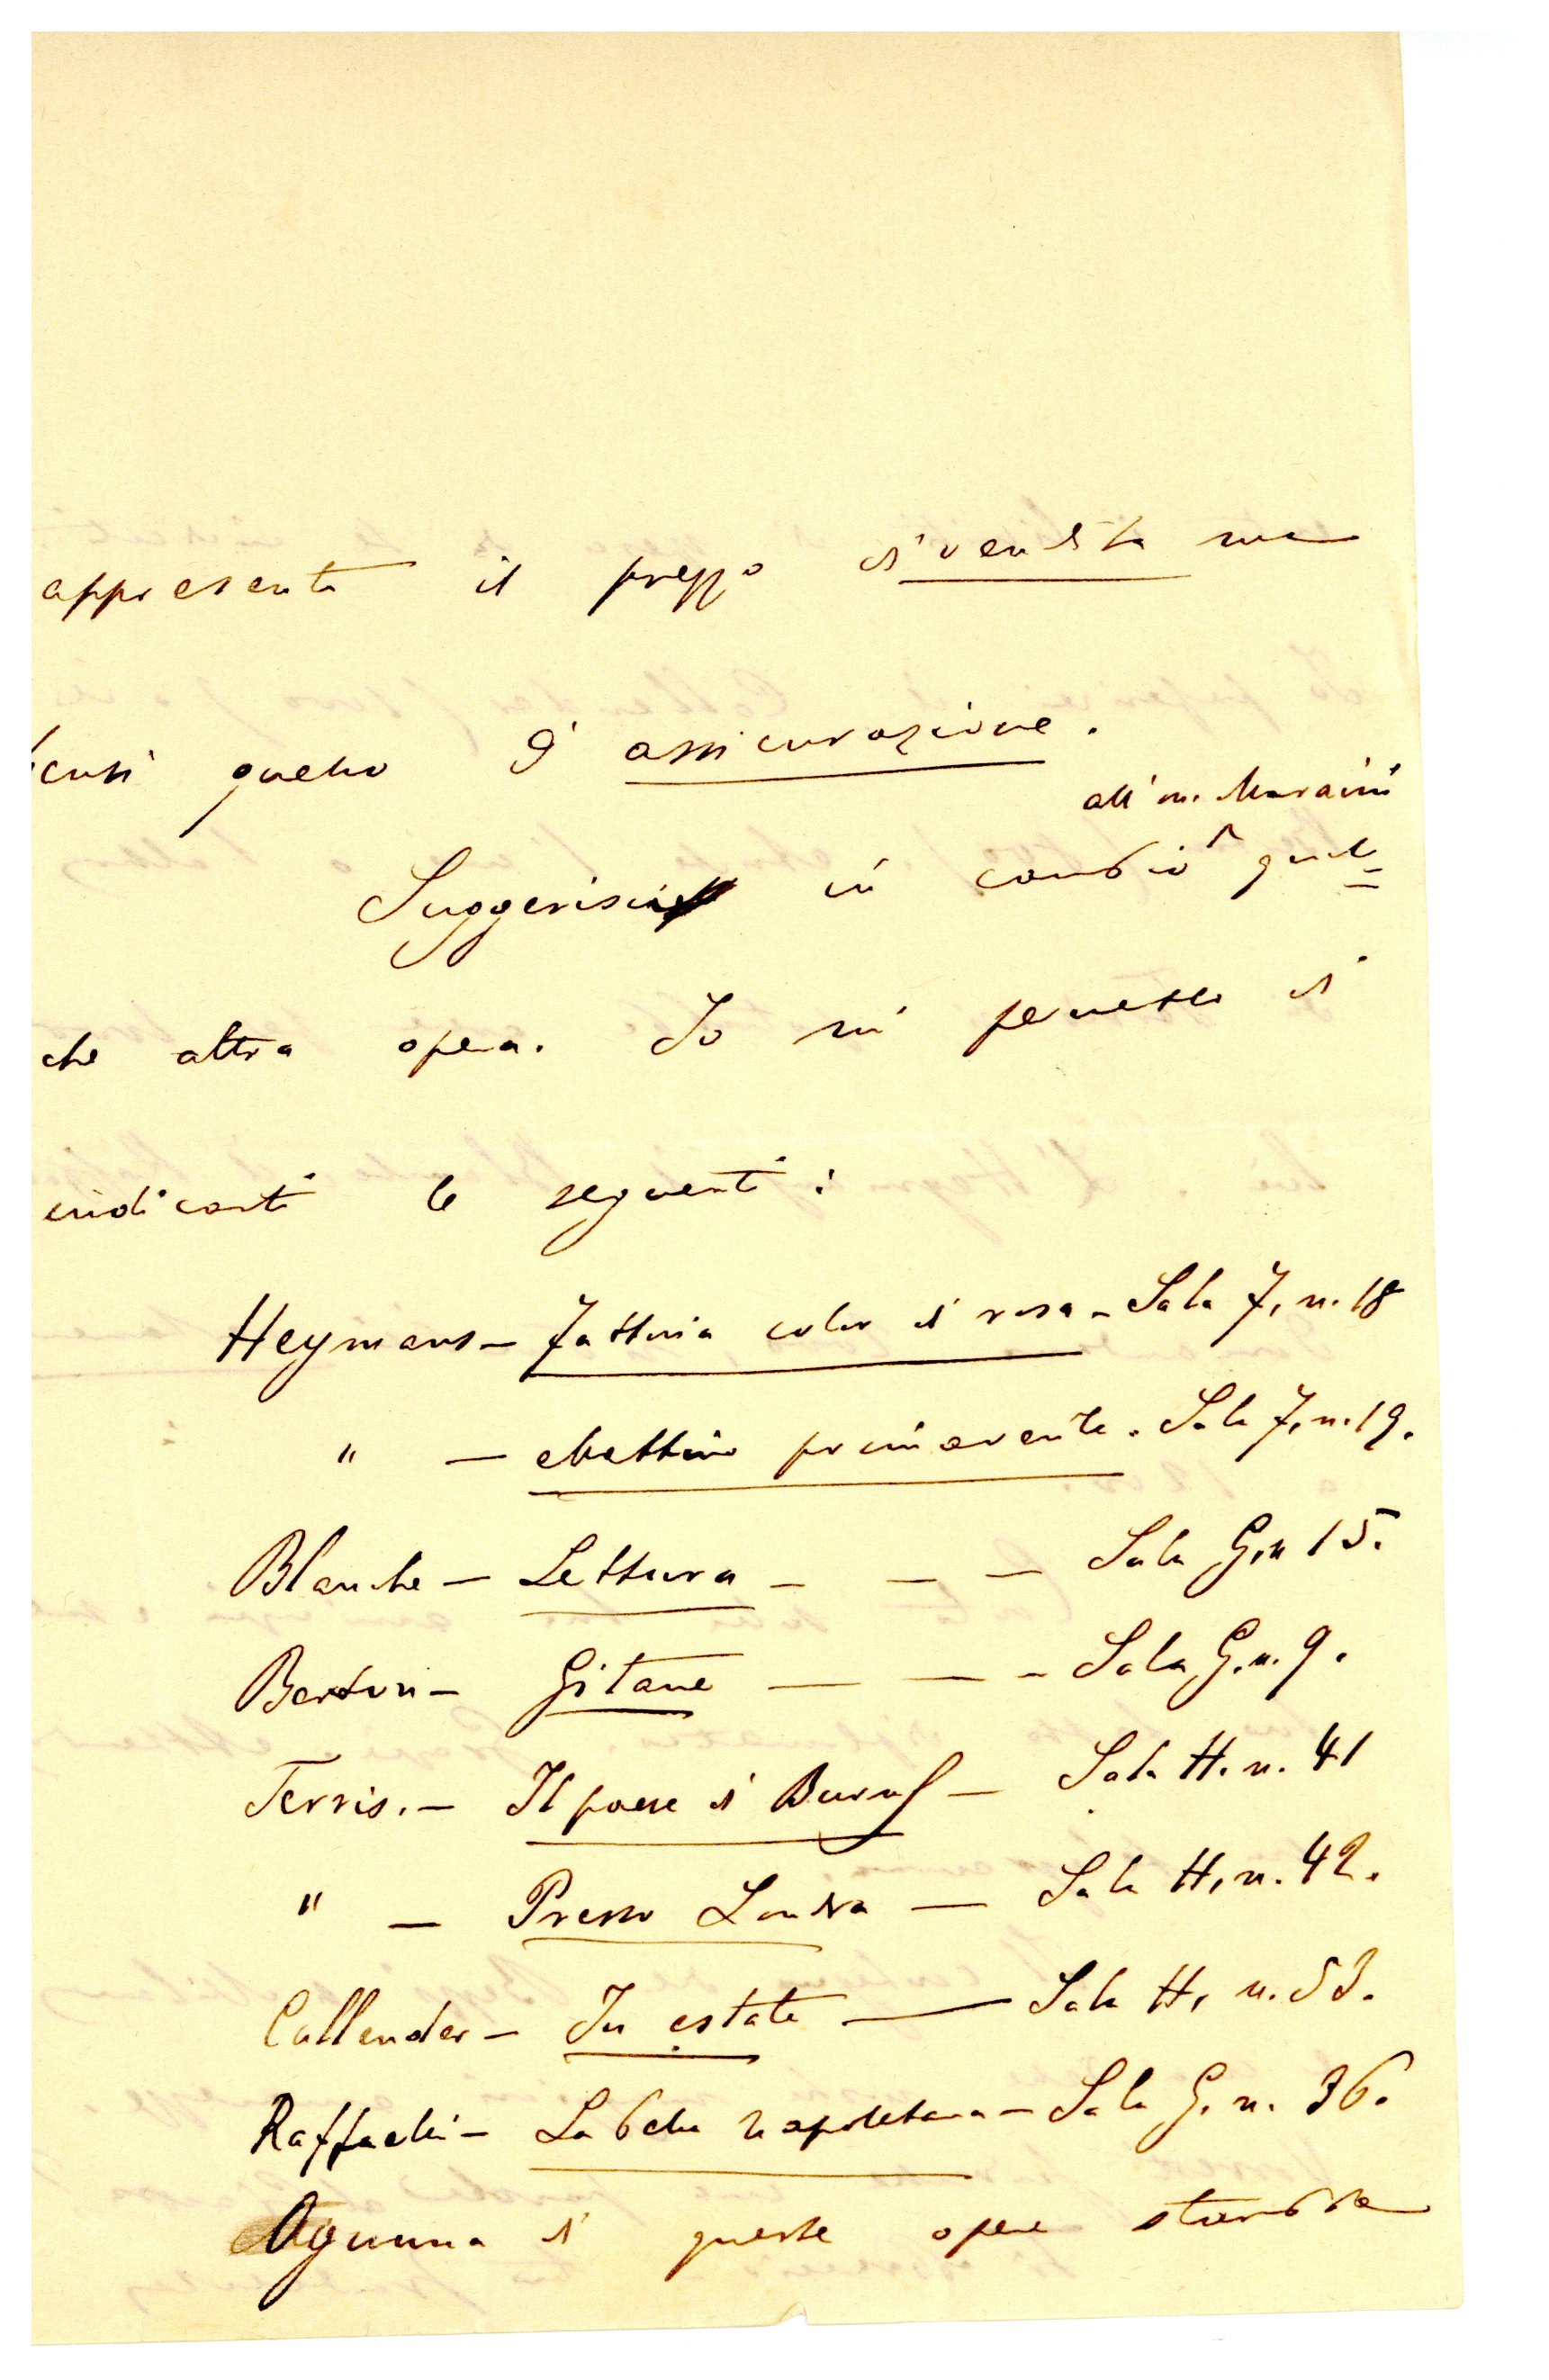 appresenta il prezzo di vendita ma
bensì quello d'assicurazione.
all'on. Maraini
Suggerisci in cambio ^ qual=
che altra opera. Io mi permetto di
indicarti le seguenti:
Heymans - Fattoria color di rosa - Sala 7, n. 18
" - Mattino primaverile. Sala 7, n. 19.
Blanche - Lettura - - - Sala G, n 15.
Berton - Gitane - - - Sala G. n. 9.
Terris. - Il paese di Burns - Sala H. n. 41
" - Presso Londra - Sala H, n. 42.
Callender - In estate - Sala H, n. 53.
Raffaelli - La bella napoletana - Sala G. n. 36.
Ognuna di queste opere starebbe